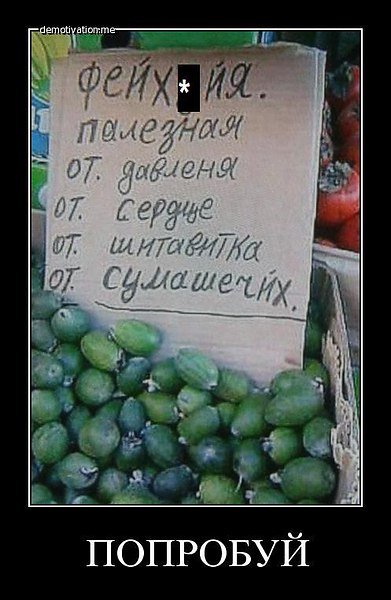 demotivation.me
фейх*йя.
палезная
от. давленя
от. сердце
от. шитавитка
от. сумашечйх.
ПОПРОБУЙ